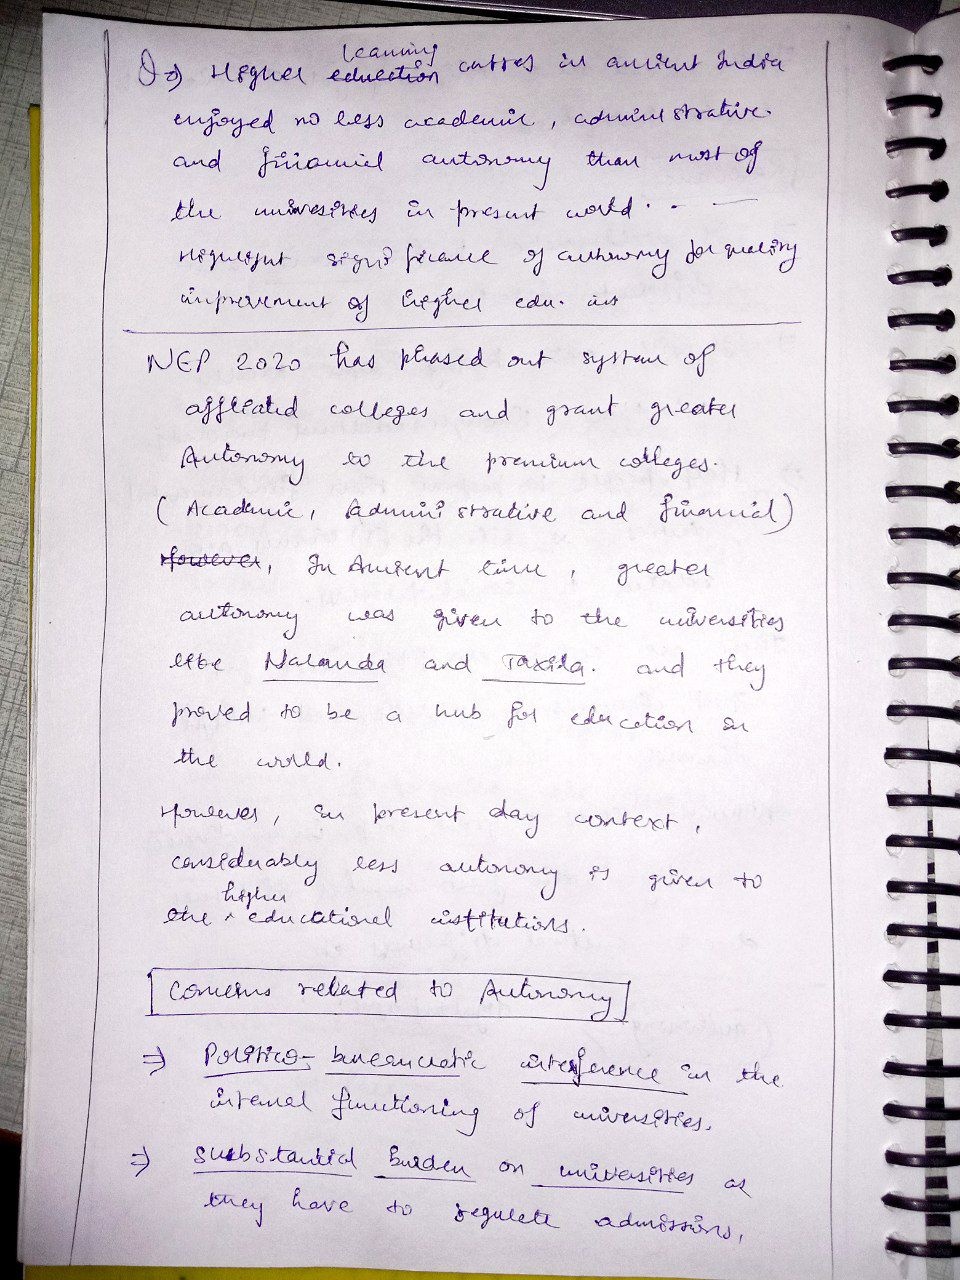 Q⇒ Higher learning education centres in ancient India
enjoyed no less academic, administrative
and financial autonomy than most of
the universities in present world. . —
Highlight significance of autonomy for quality
improvement of higher edu. ins
NEP 2020 has phased out system of
affliated colleges and grant greater
Autonomy to the premium colleges.
(Academic, Administrative and financial)
However, In Ancient time, greater
autonomy was given to the universities
like Nalanda and Taxila. and they
proved to be a hub for education in
the world.
However, in present day context,
considerably less autonomy is given to
the higher educational institutions.
Concerns related to Autonomy
⇒ Politico- bureaucratic interference in the
internal functioning of universities.
⇒ Substantial burden on universities as
they have to regulate admissions,